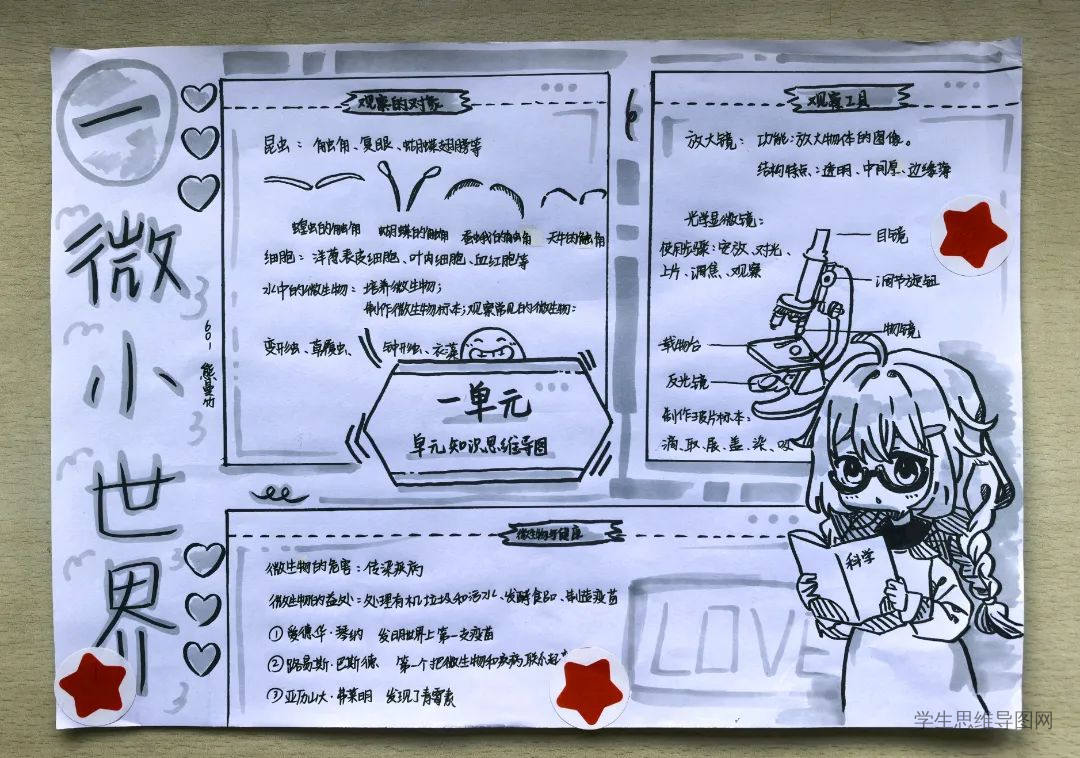 一
微小世界
601 熊曼竹
观察的对象
昆虫：触角、复眼、蝴蝶翅膀等
蝗虫的触角 蝴蝶的触角 蚕蛾的触角 天牛的触角
细胞：洋葱表皮细胞、叶肉细胞、血红胞等
水中的微生物：培养微生物；
制作微生物标本；观察常见的微生物：
变形虫、草履虫、钟形虫、衣藻
一单元
单元知识思维导图
观察工具
放大镜：功能：放大物体的图像。
结构特点：透明、中间厚、边缘薄
光学显微镜：
使用步骤：安放、对光、
上片、调焦、观察
目镜
调节旋钮
物镜
载物台
反光镜
制作玻片标本：
滴、取、展、盖、染、吸
科学
微生物与健康
微生物的危害：传染疾病
微生物的益处：处理有机垃圾和污水、发酵食品、制造疫苗
①爱德华·琴纳 发明世界上第一支疫苗
②路易斯·巴斯德 第一个把微生物和疾病联系起
③亚历山大·弗莱明 发现了青霉素
LOVE
学生思维导图网